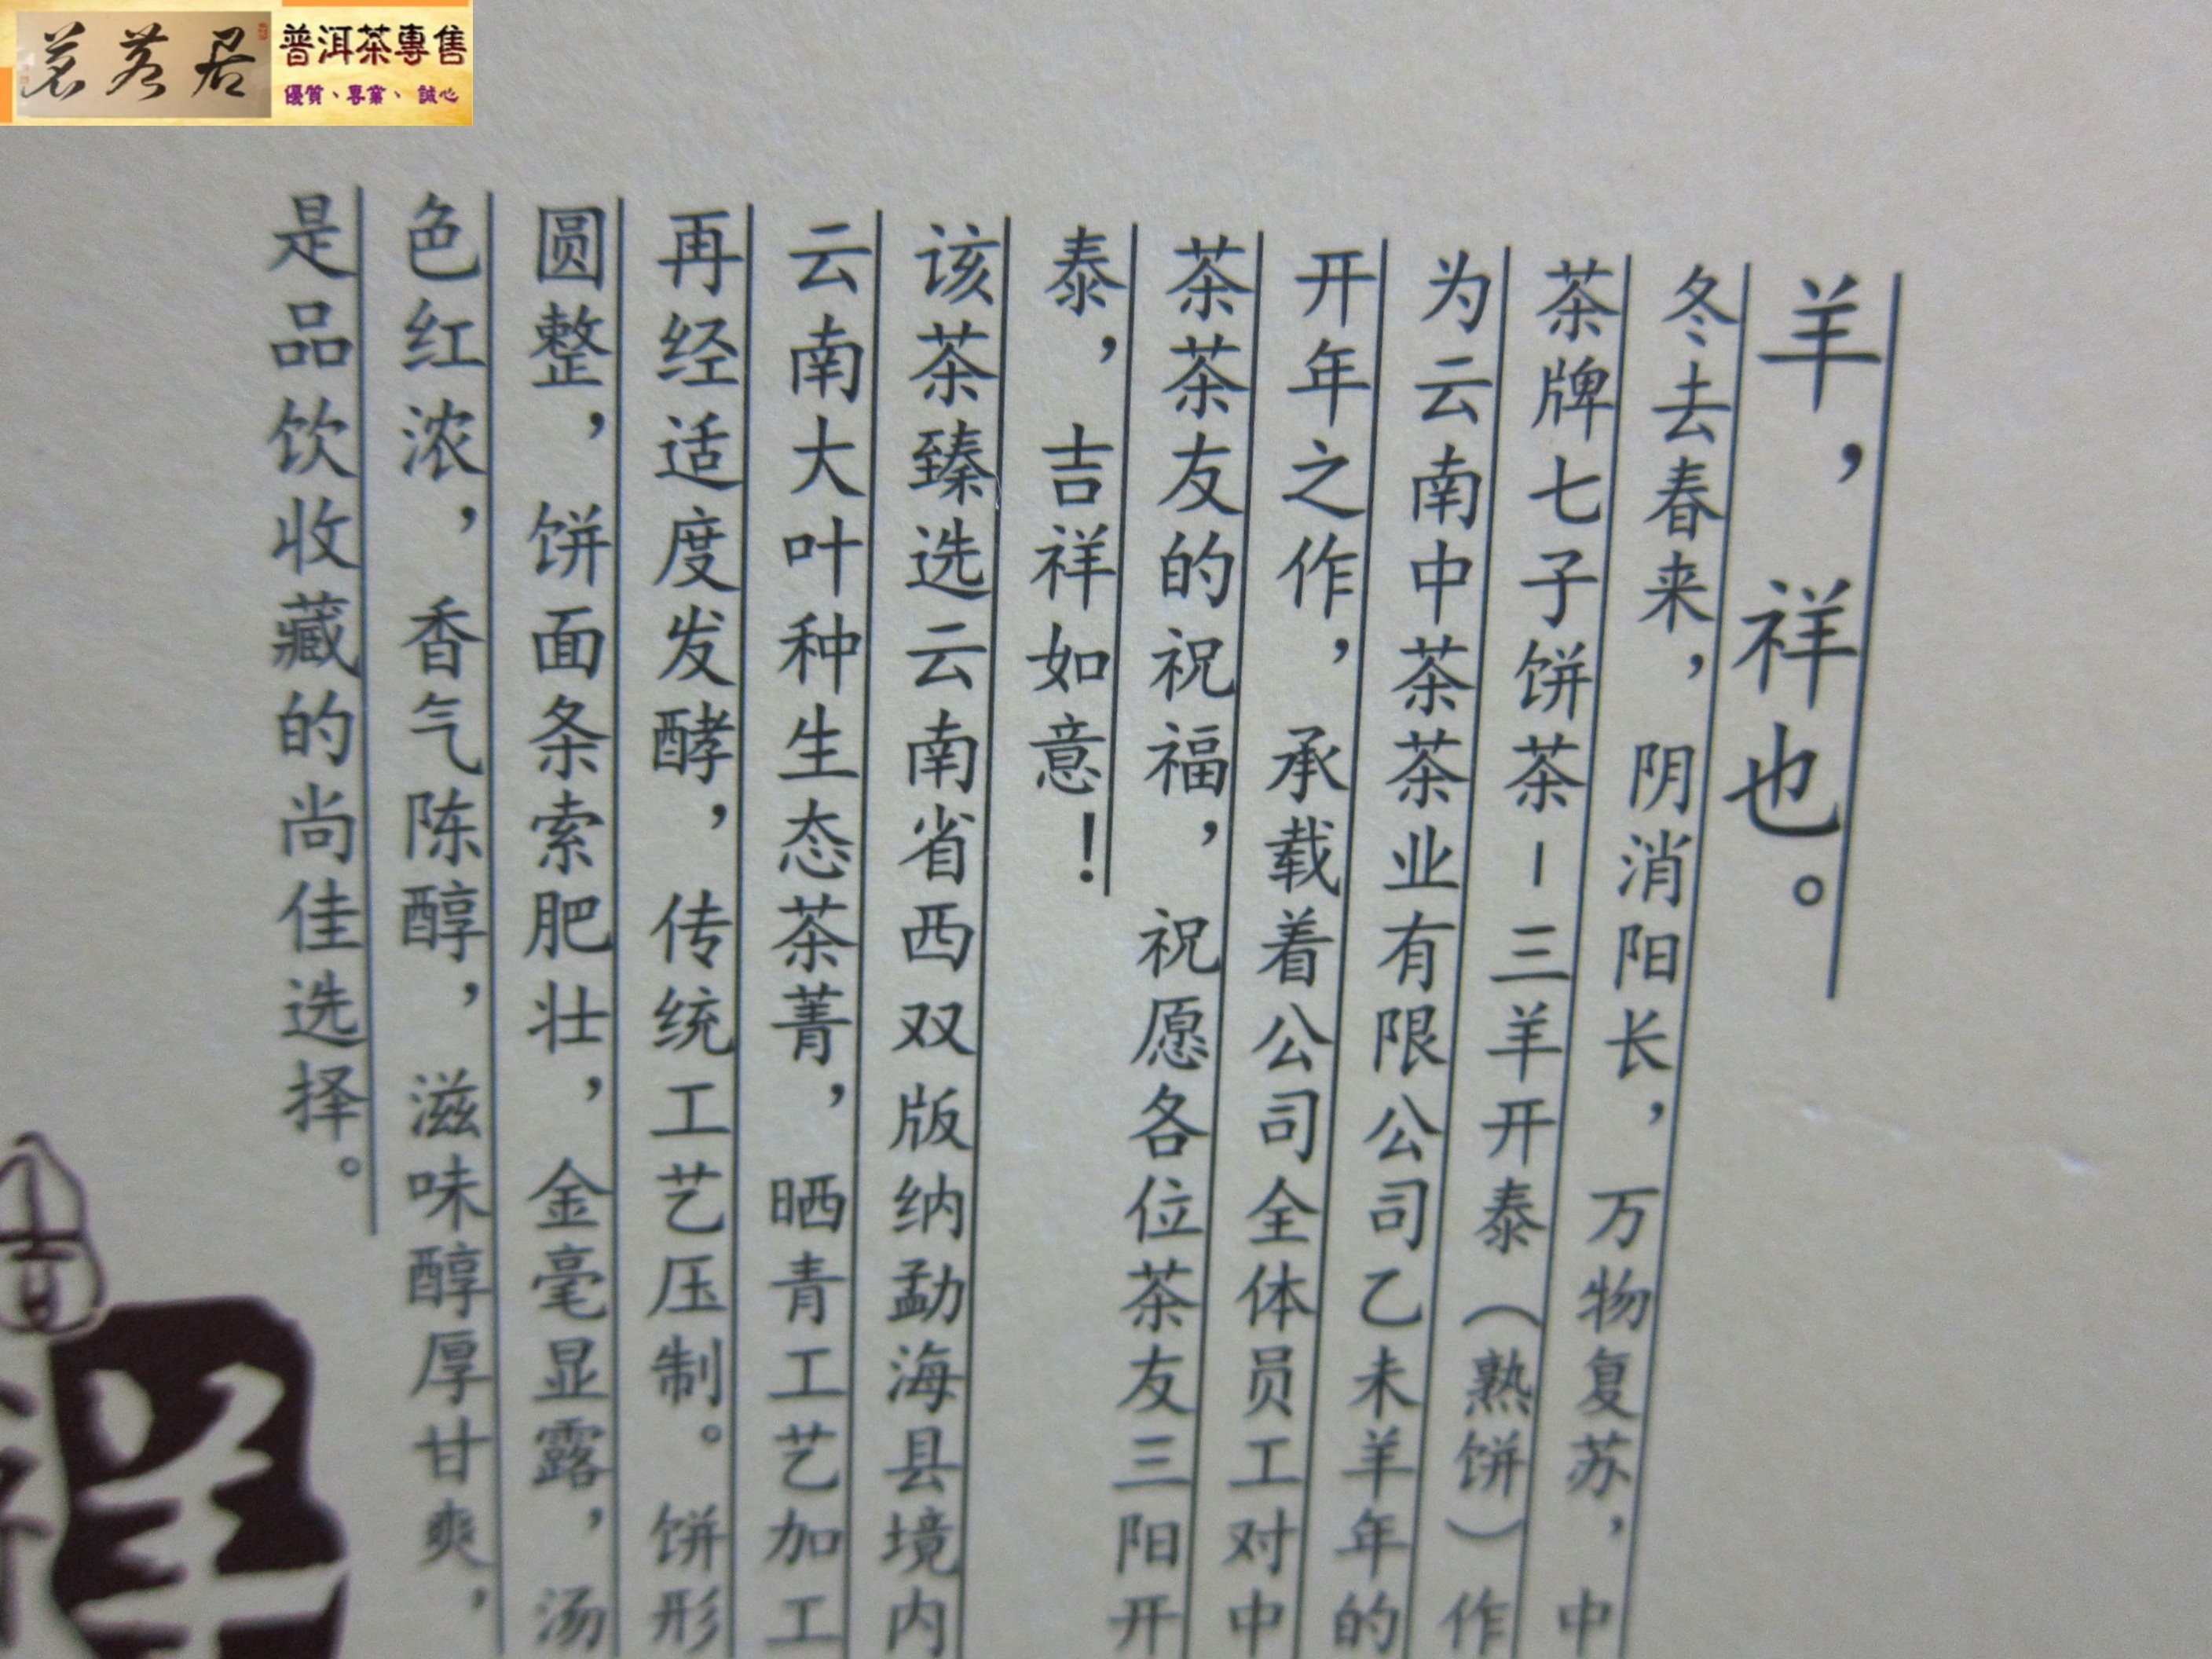 茗茗居
普洱茶專售
優質、專業、誠心
羊，祥也。
冬去春来，阴消阳长，万物复苏，中
茶牌七子饼茶-三羊开泰（熟饼）作
为云南中茶茶业有限公司乙未羊年的
开年之作，承载着公司全体员工对中
茶茶友的祝福，祝愿各位茶友三阳开
泰，吉祥如意！
该茶臻选云南省西双版纳勐海县境内
云南大叶种生态茶菁，晒青工艺加工
再经适度发酵，传统工艺压制。饼形
圆整，饼面条索肥壮，金毫显露，汤
色红浓，香气陈醇，滋味醇厚甘爽，
是品饮收藏的尚佳选择。
吉
祥